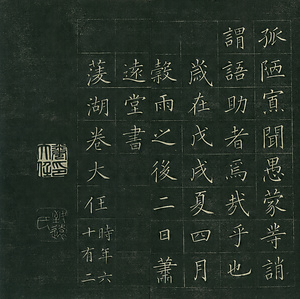 孤陋寡聞愚蒙等誚
謂語助者焉哉乎也
歲在戊戌夏四月
穀雨之後二日蕭
遠堂書
菠湖卷大任時年六
十有二